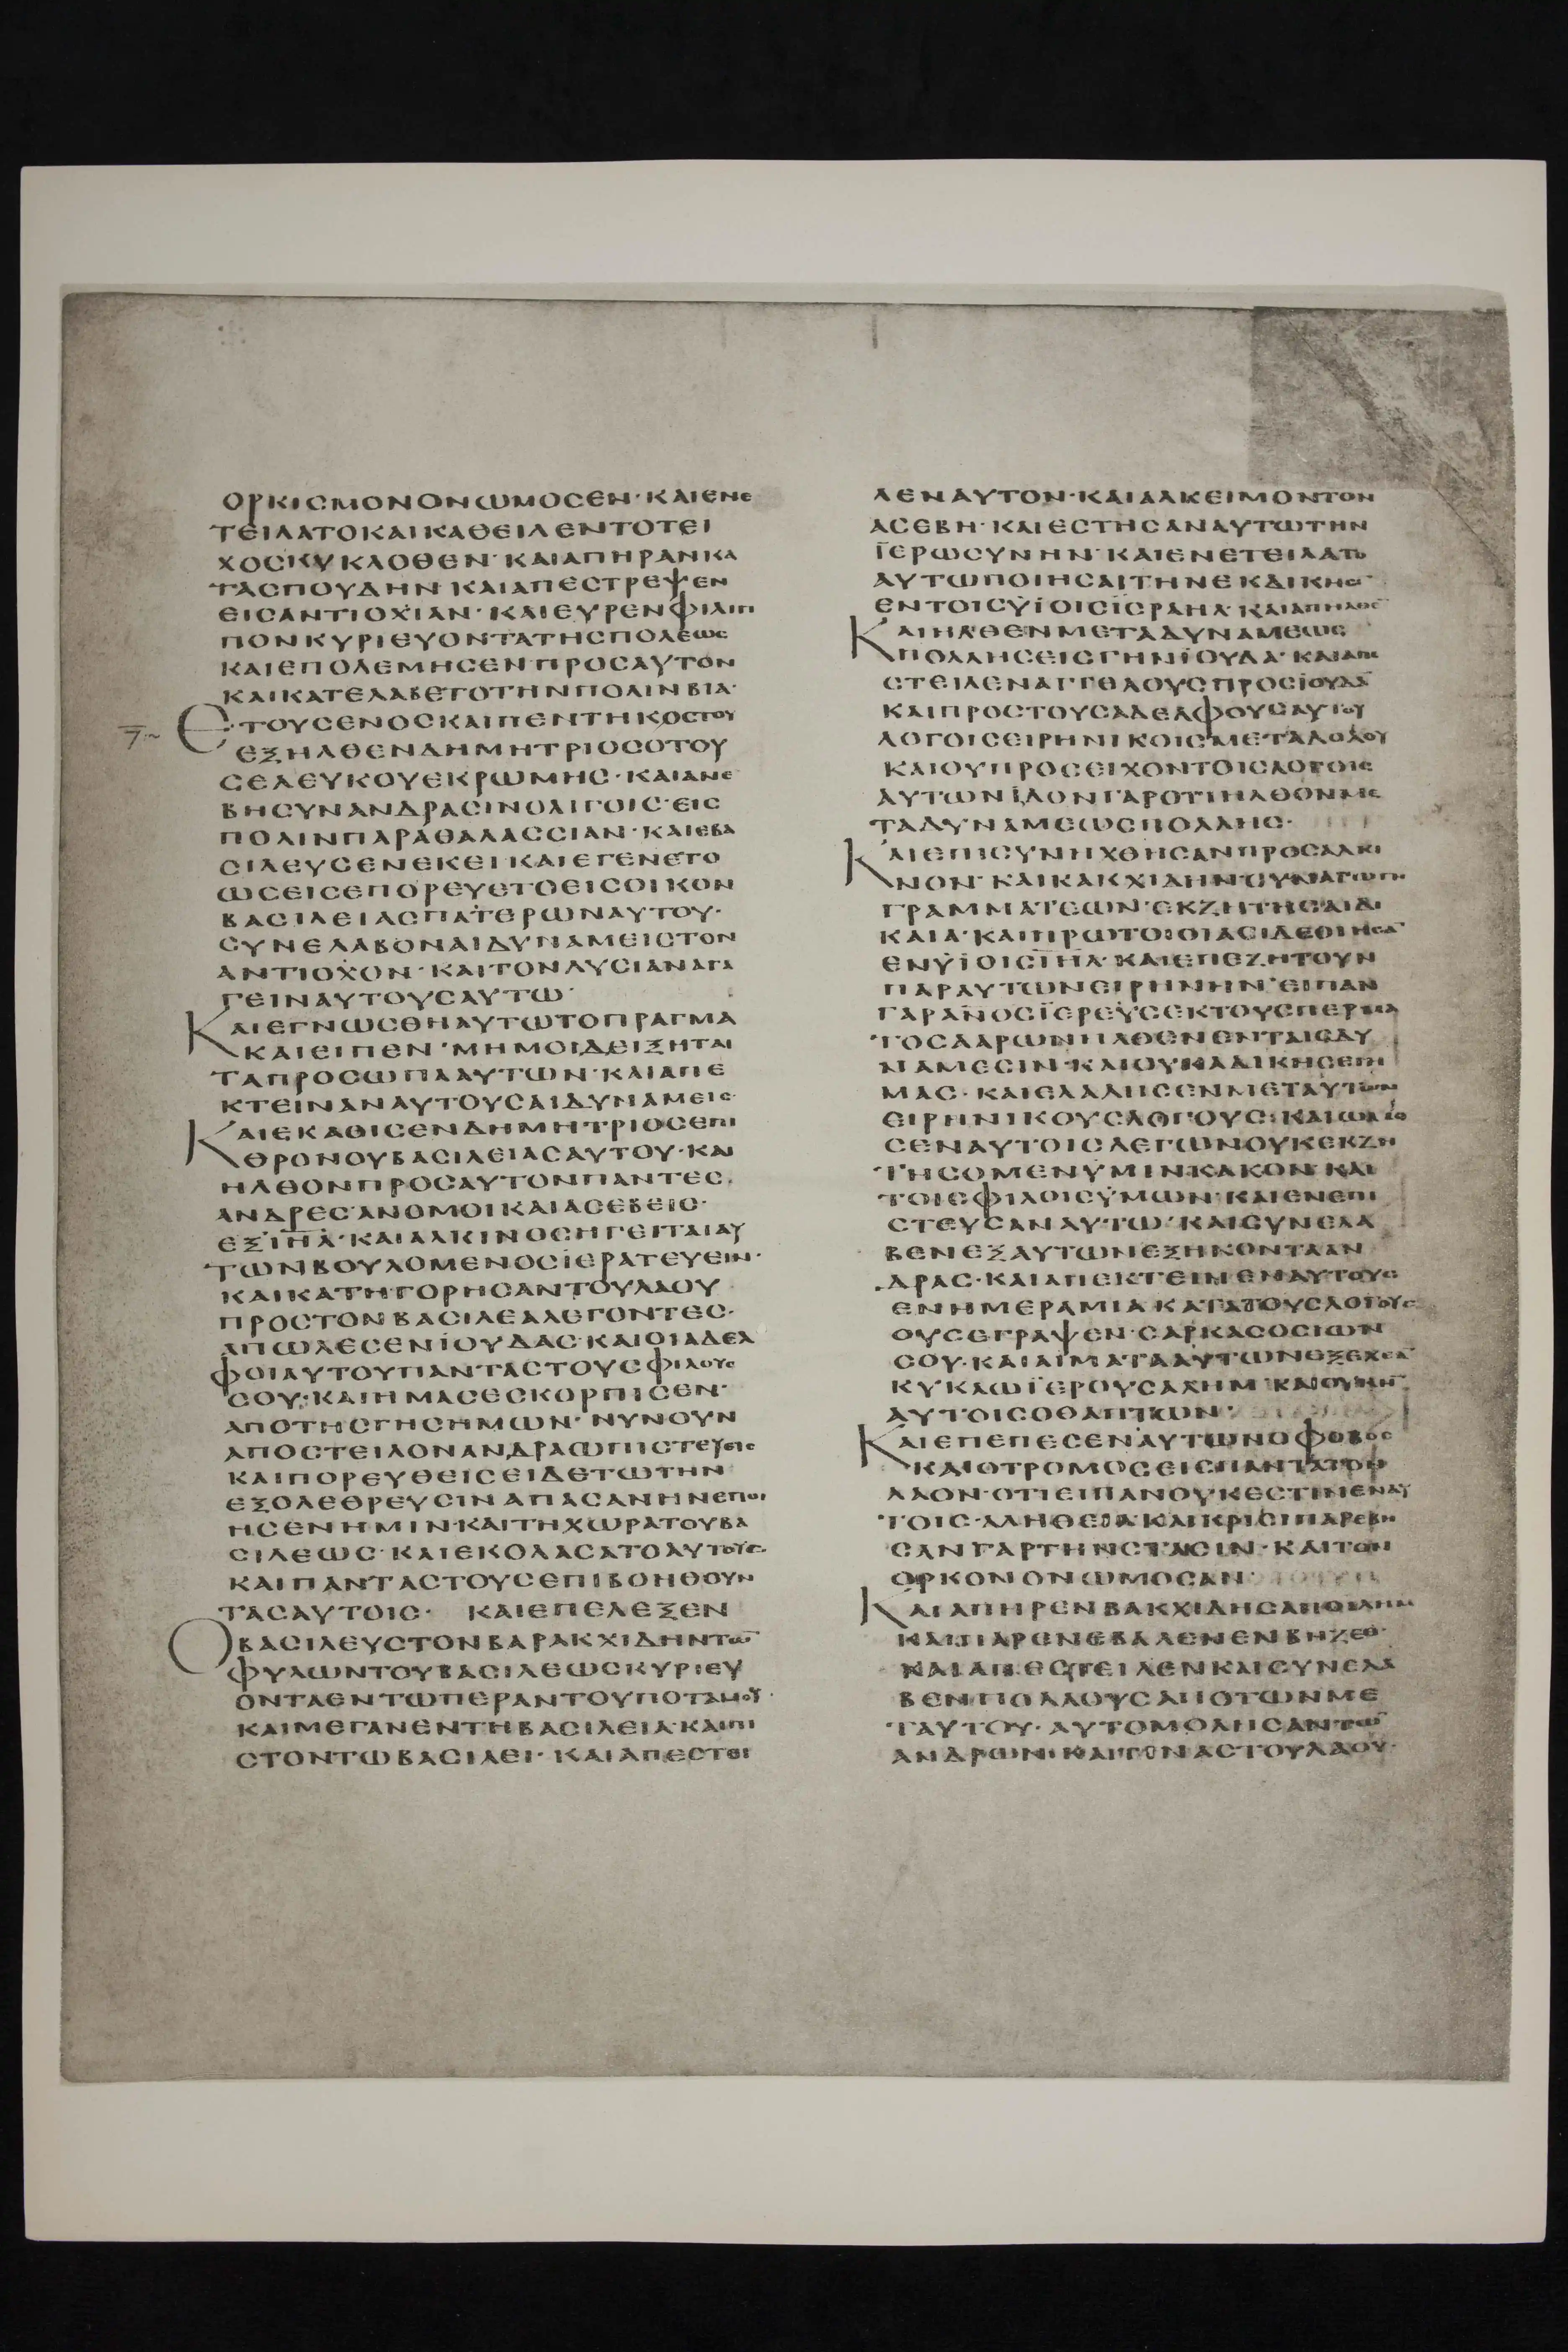 ΟΡΚΙCΜΟΝΟΝΩΜΟCΕΝ·ΚΑΙΕΝΕ
ΤΕΙΛΑΤΟΚΑΙΚΑΘΕΙΛΕΝΤΟΤΕΙ
ΧΟCΚΥΚΛΟΘΕΝ·ΚΑΙΑΠΗΡΑΝΚΑ
ΤΑCΠΟΥΔΗΝ·ΚΑΙΑΠΕCΤΡΕΨΕΝ
ΕΙCΑΝΤΙΟΧΙΑΝ·ΚΑΙΕΥΡΕΝΦΙΛΙΠ
ΠΟΝΚΥΡΙΕΥΟΝΤΑΤΗCΠΟΛΕΩC
ΚΑΙΕΠΟΛΕΜΗCΕΝΠΡΟCΑΥΤΟΝ
ΚΑΙΚΑΤΕΛΑΒΕΤΟΤΗΝΠΟΛΙΝΒΙΑ·
Ζ ΕΤΟΥCΕΝΟCΚΑΙΠΕΝΤΗΚΟCΤΟΥ
ΕΞΗΛΘΕΝΔΗΜΗΤΡΙΟCΟΤΟΥ
CΕΛΕΥΚΟΥΕΚΡΩΜΗC·ΚΑΙΑΝΕ
ΒΗCΥΝΑΝΔΡΑCΙΝΟΛΙΓΟΙC·ΕΙC
ΠΟΛΙΝΠΑΡΑΘΑΛΑCCΙΑΝ·ΚΑΙΕΒΑ
CΙΛΕΥCΕΝΕΚΕΙΚΑΙΕΓΕΝΕΤΟ
ΩCΕΙCΕΠΟΡΕΥΕΤΟΕΙCΟΙΚΟΝ
ΒΑCΙΛΕΙΑCΠΑΤΕΡΩΝΑΥΤΟΥ·
CΥΝΕΛΑΒΟΝΑΙΔΥΝΑΜΕΙCΤΟΝ
ΑΝΤΙΟΧΟΝ·ΚΑΙΤΟΝΛΥCΙΑΝΑΓΑ
ΓΕΙΝΑΥΤΟΥCΑΥΤΩ·
ΚΑΙΕΓΝΩCΘΗΑΥΤΩΤΟΠΡΑΓΜΑ
ΚΑΙΕΙΠΕΝ·ΜΗΜΟΙΔΕΙΞΗΤΑΙ
ΤΑΠΡΟCΩΠΑΑΥΤΩΝ·ΚΑΙΑΠΕ
ΚΤΕΙΝΑΝΑΥΤΟΥCΑΙΔΥΝΑΜΕΙC·
ΚΑΙΕΚΑΘΙCΕΝΔΗΜΗΤΡΙΟCΕΠΙ
ΘΡΟΝΟΥΒΑCΙΛΕΙΑCΑΥΤΟΥ·ΚΑΙ
ΗΛΘΟΝΠΡΟCΑΥΤΟΝΠΑΝΤΕC·
ΑΝΔΡΕCΑΝΟΜΟΙΚΑΙΑCΕΒΕΙC·
ΕΞΙΗΛ·ΚΑΙΑΛΚΙΝΟCΗΓΕΙΤΑΙΑΥ
ΤΩΝΒΟΥΛΟΜΕΝΟCΙΕΡΑΤΕΥΕΙΝ·
ΚΑΙΚΑΤΗΓΟΡΗCΑΝΤΟΥΛΑΟΥ
ΠΡΟCΤΟΝΒΑCΙΛΕΑΛΕΓΟΝΤΕC·
ΑΠΩΛΕCΕΝΪΟΥΔΑC·ΚΑΙΟΙΑΔΕΛ
ΦΟΙΑΥΤΟΥΠΑΝΤΑCΤΟΥCΦΙΛΟΥC
CΟΥ·ΚΑΙΗΜΑCΕCΚΟΡΠΙCΕΝ·
ΑΠΟΤΗCΓΗCΗΜΩΝ·ΝΥΝΟΥΝ
ΑΠΟCΤΕΙΛΟΝΑΝΔΡΑΩΠΙCΤΕΥCΙC
ΚΑΙΠΟΡΕΥΘΕΙCΕΙΔΕΤΩΤΗΝ
ΕΞΟΛΕΘΡΕΥCΙΝΑΠΑCΑΝΗΝΕΠΟΙ
ΗCΕΝΗΜΙΝ·ΚΑΙΤΗΧΩΡΑΤΟΥΒΑ
CΙΛΕΩC·ΚΑΙΕΚΟΛΑCΑΤΟΑΥΤΟΥC·
ΚΑΙΠΑΝΤΑCΤΟΥCΕΠΙΒΟΗΘΟΥΝ
ΤΑCΑΥΤΟΙC· ΚΑΙΕΠΕΛΕΞΕΝ
ΟΒΑCΙΛΕΥCΤΟΝΒΑΡΑΚΧΙΔΗΝΤΩ̅
ΦΥΛΩΝΤΟΥΒΑCΙΛΕΩCΚΥΡΙΕΥ
ΟΝΤΑΕΝΤΩΠΕΡΑΝΤΟΥΠΟΤΑΜΟΥ·
ΚΑΙΜΕΓΑΝΕΝΤΗΒΑCΙΛΕΙΑ·ΚΑΙΠΙ
CΤΟΝΤΩΒΑCΙΛΕΙ·ΚΑΙΑΠΕCΤΕΙ
ΛΕΝΑΥΤΟΝ·ΚΑΙΑΛΚΕΙΜΟΝΤΟΝ
ΑCΕΒΗ·ΚΑΙΕCΤΗCΑΝΑΥΤΩΤΗΝ
ΪΕΡΩCΥΝΗΝ·ΚΑΙΕΝΕΤΕΙΛΑΤΟ
ΑΥΤΩΠΟΙΗCΑΙΤΗΝΕΚΔΙΚΗC̅
ΕΝΤΟΙCΥΪΟΙCΪCΡΑΗΛ·ΚΑΙΑΠΗΛΘΕ̅
ΚΑΙΗΛΘΕΝΜΕΤΑΔΥΝΑΜΕΩC
ΠΟΛΛΗCΕΙCΓΗΝΪΟΥΔΑ·ΚΑΙΑΠΕ
CΤΕΙΛΕΝΑΓΓΕΛΟΥCΠΡΟCΪΟΥΔΑ̅
ΚΑΙΠΡΟCΤΟΥCΑΔΕΛΦΟΥCΑΥΤΟΥ
ΛΟΓΟΙCΕΙΡΗΝΙΚΟΙCΜΕΤΑΔΟΛΟΥ
ΚΑΙΟΥΠΡΟCΕΙΧΟΝΤΟΙCΛΟΓΟΙC
ΑΥΤΩΝΙΔΟΝΓΑΡΟΤΙΗΛΘΟΝΜΕ
ΤΑΔΥΝΑΜΕΩCΠΟΛΛΗC·
ΚΑΙΕΠΙCΥΝΗΧΘΗCΑΝΠΡΟCΑΛΚΙ
ΝΟΝ·ΚΑΙΚΑΚΧΙΔΗΝCΥΝΑΓΩΓΗ
ΓΡΑΜΜΑΤΕΩΝ·ΕΚΖΗΤΗCΑΙΔΙ
ΚΑΙΑ·ΚΑΙΠΡΩΤΟΙΟΙΑCΙΔΕΟΙΗCΑ̅
ΕΝΥΪΟΙCΙΗΛ·ΚΑΙΕΠΕΖΗΤΟΥΝ
ΠΑΡΑΥΤΩΝΕΙΡΗΝΗΝ·ΕΙΠΑΝ
ΓΑΡΑΝΟCΪΕΡΕΥCΕΚΤΟΥCΠΕΡΜΑ
ΤΟCΑΑΡΩΝΗΛΘΕΝΕΝΤΑΙCΔΥ
ΝΑΜΕCΙΝ·ΚΑΙΟΥΚΑΔΙΚΗCΕΙΗ
ΜΑC·ΚΑΙΕΛΑΛΗCΕΝΜΕΤΑΥΤΩΝ
ΕΙΡΗΝΙΚΟΥCΛΟΓΟΥC·ΚΑΙΩΜΟ
CΕΝΑΥΤΟΙCΛΕΓΩΝΟΥΚΕΚΖΗ
ΤΗCΟΜΕΝΥΜΙΝΚΑΚΟΝ·ΚΑΙ
ΤΟΙCΦΙΛΟΙCΥΜΩΝ·ΚΑΙΕΝΕΠΙ
CΤΕΥCΑΝΑΥΤΩ·ΚΑΙCΥΝΕΛΑ
ΒΕΝΕΞΑΥΤΩΝΕΞΗΚΟΝΤΑΑΝ
ΔΡΑC·ΚΑΙΑΠΕΚΤΕΙΝΕΝΑΥΤΟΥC
ΕΝΗΜΕΡΑΜΙΑΚΑΤΑΤΟΥCΛΟΓΟΥC
ΟΥCΕΓΡΑΨΕΝ·CΑΡΚΑCΟCΙΩΝ
CΟΥ·ΚΑΙΑΙΜΑΤΑΑΥΤΩΝΕΞΕΧΕΑ̅
ΚΥΚΛΩΪΕΡΟΥCΑΛΗΜ·ΚΑΙΟΥΚΗ̅
ΑΥΤΟΙCΟΘΑΠΤΩΝ·
ΚΑΙΕΠΕΠΕCΕΝΑΥΤΩΝΟΦΟΒΟC
ΚΑΙΟΤΡΟΜΟCΕΙCΠΑΝΤΑΤΟΝ
ΛΑΟΝ·ΟΤΙΕΙΠΑΝΟΥΚΕCΤΙΝΕΝΑΥ
ΤΟΙC·ΑΛΗΘΕΙΑΚΑΙΚΡΙCΙC·ΠΑΡΕΒΗ
CΑΝΓΑΡΤΗΝCΤΑCΙΝ·ΚΑΙΤΟΝ
ΟΡΚΟΝΟΝΩΜΟCΑΝ·
ΚΑΙΑΠΗΡΕΝΒΑΚΧΙΔΗCΑΠΟΙΛΗΜ
ΚΑΙΠΑΡΕΝΕΒΑΛΕΝΕΝΒΗΖΕΘ·
ΚΑΙΑΠΕCΤΕΙΛΕΝΚΑΙCΥΝΕΛΑ
ΒΕΝΠΟΛΛΟΥCΑΠΟΤΩΝΜΕ
ΤΑΥΤΟΥ·ΑΥΤΟΜΟΛΗCΑΝΤΩ̅
ΑΝΔΡΩΝ·ΚΑΙΤΙΝΑCΤΟΥΛΑΟΥ·